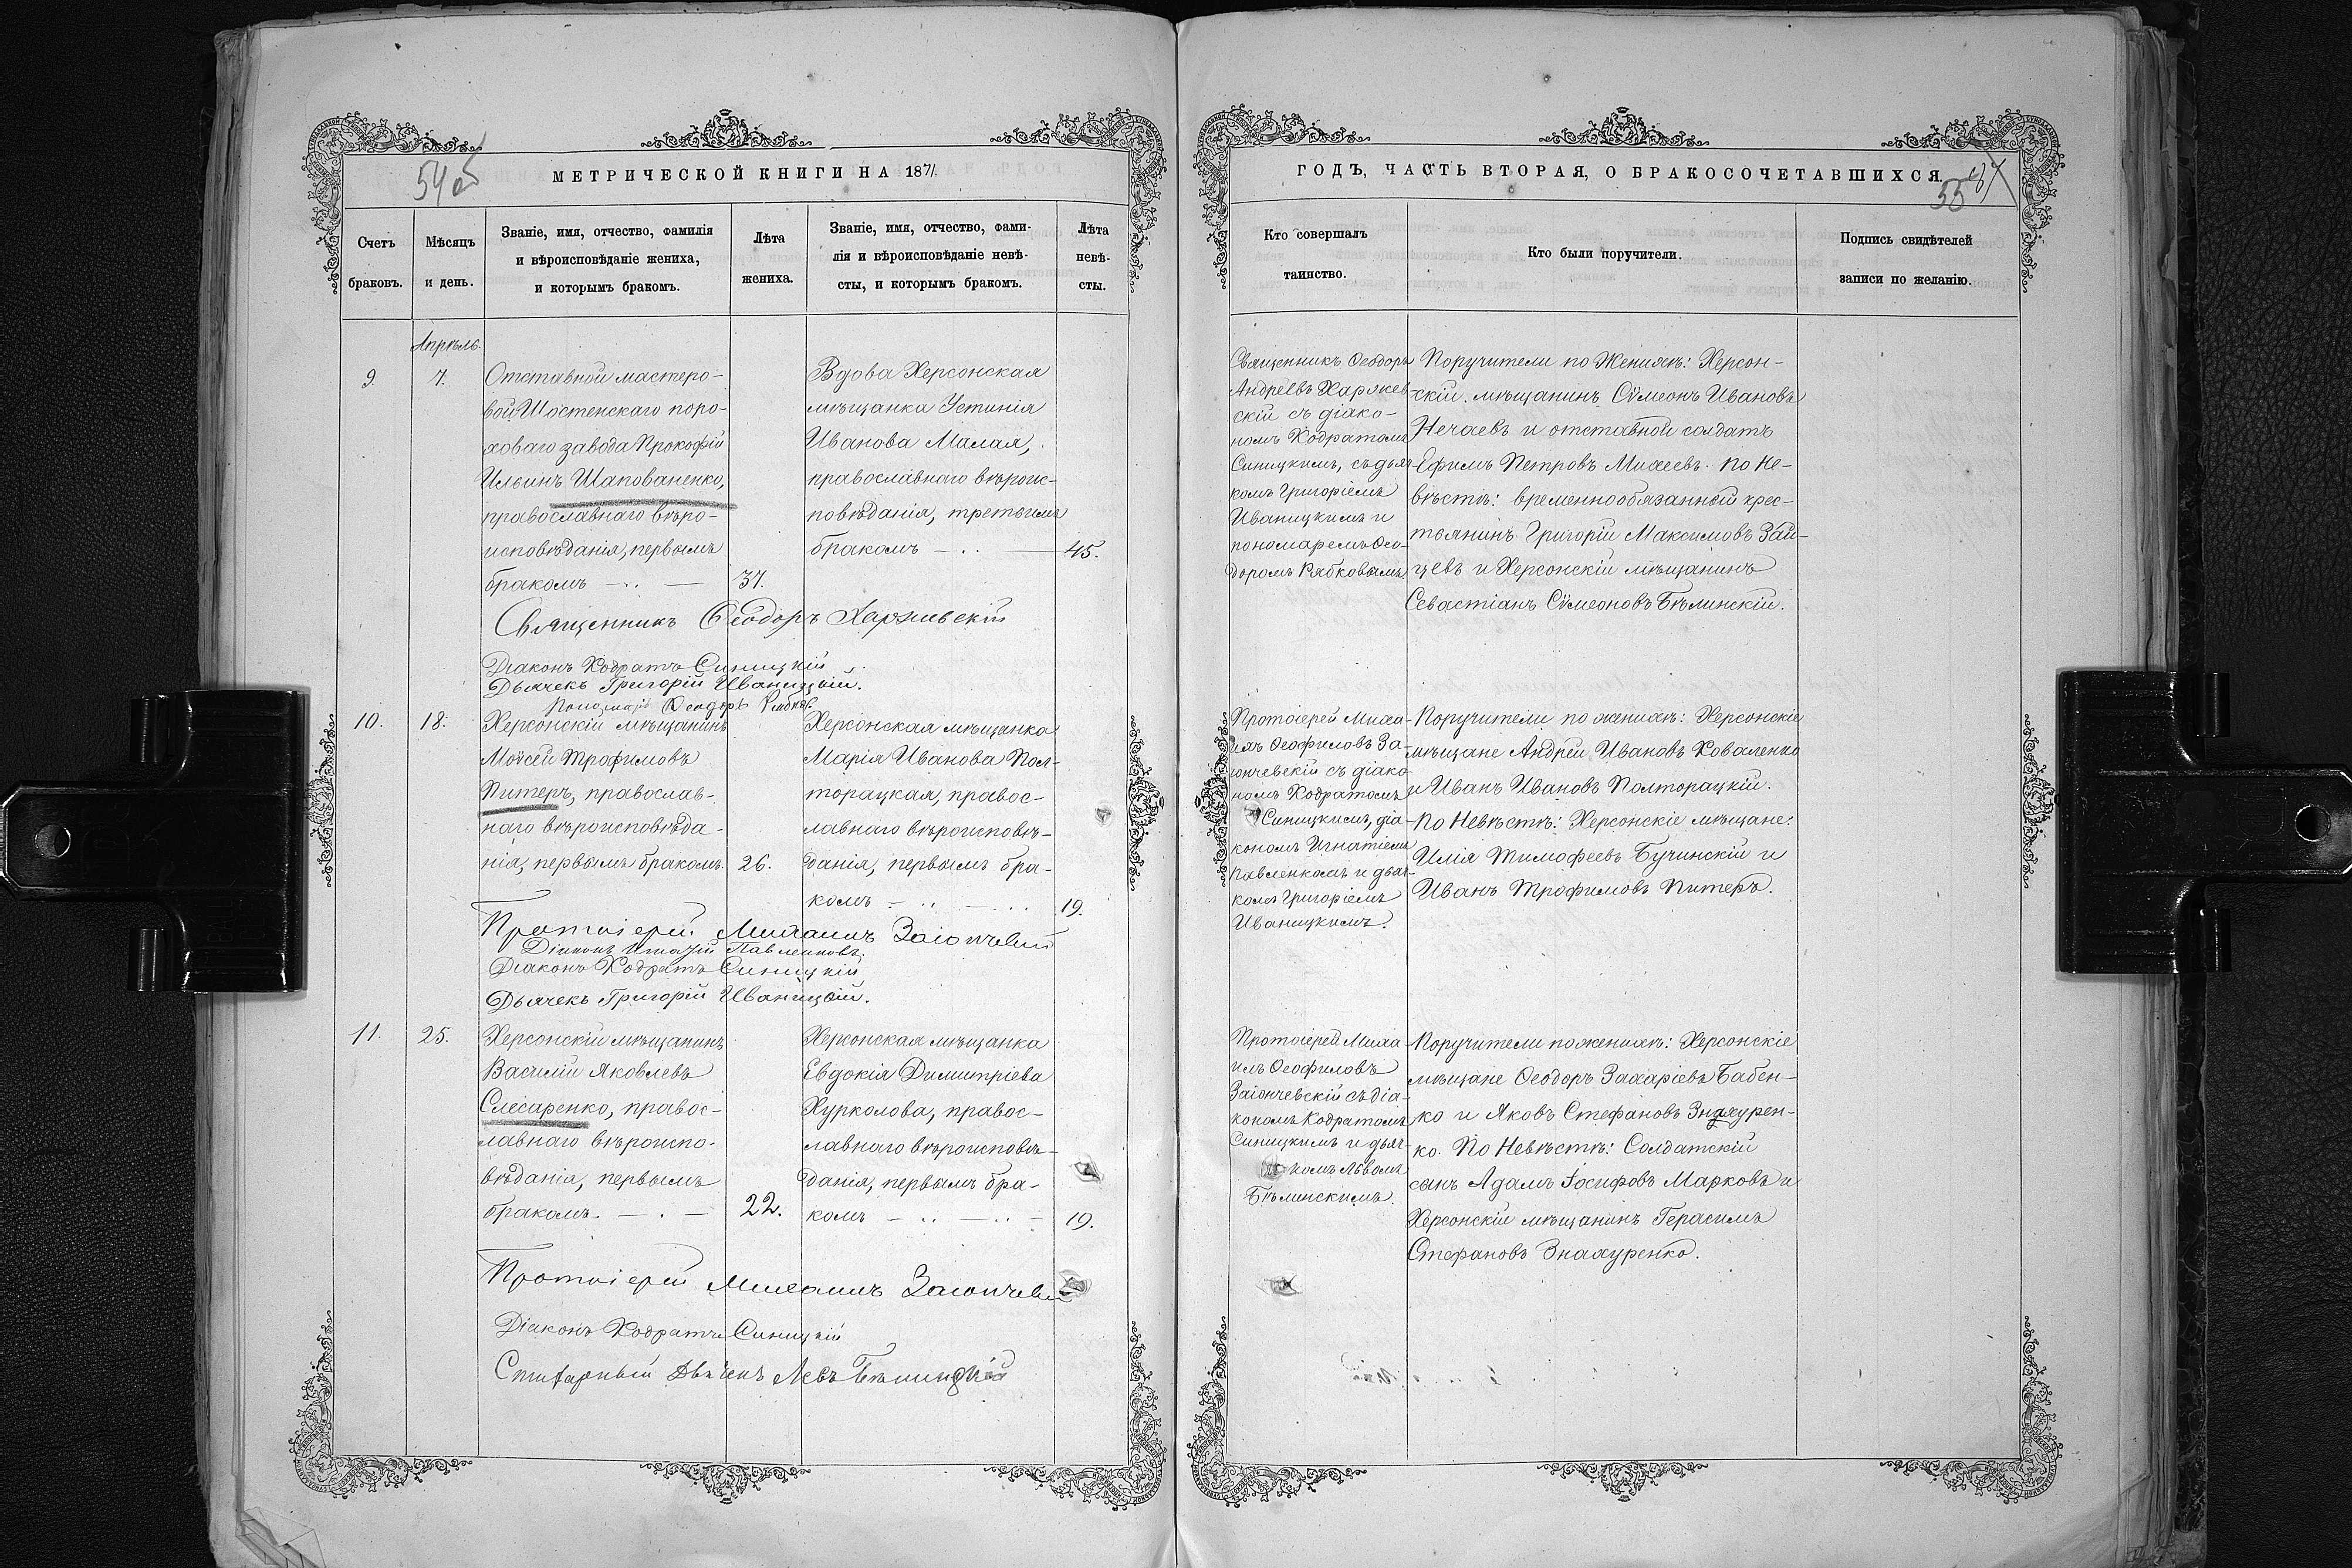 54об
МЕТРИЧЕСКОЙ КНИГИ НА 1871.
Счетъ браковъ.
Мѣсяцъ и день.
Званіе, имя, отчество, фамилія
и вѣроисповѣданіе жениха,
и которымъ бракомъ.
Лѣта
жениха.
Званіе, имя, отчество, фами-
лія и вѣроисповѣданіе невѣ-
сты, и которымъ бракомъ.
Лѣта
невѣ-
сты.
Апрѣль.
9.
7.
Отставной мастеро-
вой Шостенскаго поро-
ховаго завода Прокофій
Ильинъ Шапованенко,
православнаго вѣро-
исповѣданія, первымъ
бракомъ
37.
Вдова Херсонская
мѣщанка Устинія
Иванова Малая,
православнаго вѣроис-
повѣданія, третьимъ
бракомъ
45.
Священникъ Ѳеодоръ Харжевскій
Діаконъ Кодратъ Синицкій
Дьячекъ Григорій Иваницкій.
Пономарь Ѳеодоръ
10.
18.
Херсонскій мѣщанинъ
Моѵсей Трофимовъ
Питеръ, православ-
наго вѣроисповѣда-
нія, первымъ бракомъ.
26.
Херсонская мѣщанка
Марія Иванова Пол-
торацкая, правос-
лавнаго вѣроисповѣ-
данія, первымъ бра-
комъ
19.
Протоіерей Михаилъ Заіончевскій
Діаконъ Игнатій Павленковъ.
Діаконъ Кодратъ Синицкій
Дьячекъ Григорій Иваницкій.
11.
25.
Херсонскій мѣщанинъ
Василій Яковлевъ
Слесаренко, правос-
лавнаго вѣроиспо-
вѣданія, первымъ
бракомъ.
22.
Херсонская мѣщанка
Евдокія Димитріева
Курколова, правос-
лавнаго вѣроисповѣ-
данія, первымъ бра-
комъ
19.
Протоіерей Михаилъ Заіончевскій
Діаконъ Кодратъ Синицкій
Дьячекъ Левъ Бѣлинскій
ГОДЪ, ЧАСТЬ ВТОРАЯ, О БРАКОСОЧЕТАВШИХСЯ.
55
Кто совершалъ
таинство.
Кто были поручители.
Подпись свидѣтелей
записи по желанію.
Священникъ Ѳеодоръ
Андреевъ Харжев-
скій съ діако-
номъ Кодратомъ
Синицкимъ, съ дьяч-
комъ Григоріемъ
Иваницкимъ и
пономаремъ Ѳео-
доромъ Рябковымъ.
Поручители по Женихѣ: Херсон-
скій мѣщанинъ Сѵмеонъ Ивановъ
Нечаевъ и отставной солдатъ
Ефимъ Петровъ Михеевъ. По Не-
вѣстѣ: временнообязанный крес-
тьянинъ Григорій Максимовъ Зай-
цевъ и Херсонскій мѣщанинъ
Севастіанъ Сѵмеоновъ Бѣлинскій.
Протоіерей Миха-
илъ Ѳеофиловъ За-
іончевскій съ діако-
номъ Кодратомъ
Синицкимъ, діа-
кономъ Игнатіемъ
Павленкомъ и дьяч-
комъ Григоріемъ
Иваницкимъ.
Поручители по женихѣ: Херсонскіе
мѣщане Андрей Ивановъ Коваленко
и Иванъ Ивановъ Полторацкій.
По Невѣстѣ: Херсонскіе мѣщане:
Илія Тимофеевъ Бучинскій и
Иванъ Трофимовъ Питеръ.
Протоіерей Миха-
илъ Ѳеофиловъ
Заіончевскій съ діа-
кономъ Кодратомъ
Синицкимъ и дьяч-
комъ Львомъ
Бѣлинскимъ.
Поручители по женихѣ: Херсонскіе
мѣщане Ѳеодоръ Захаріевъ Бабен-
ко и Яковъ Стефановъ Знахурен-
ко. По Невѣстѣ: Солдатскій
сынъ Адамъ Іосифовъ Марковъ и
Херсонскій мѣщанинъ Герасимъ
Стефановъ Знахуренко.